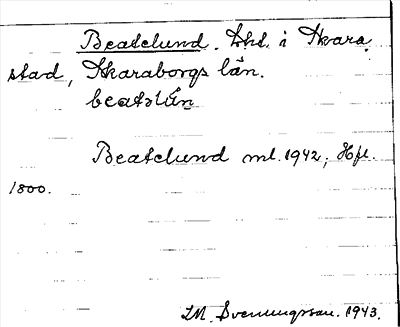 Beatelund. Lht. i Skara
stad, Skaraborgs län.
beatəlún
Beatelund ml. 1942; Hfl.
1800.
I.M. Svenungsson. 1943.